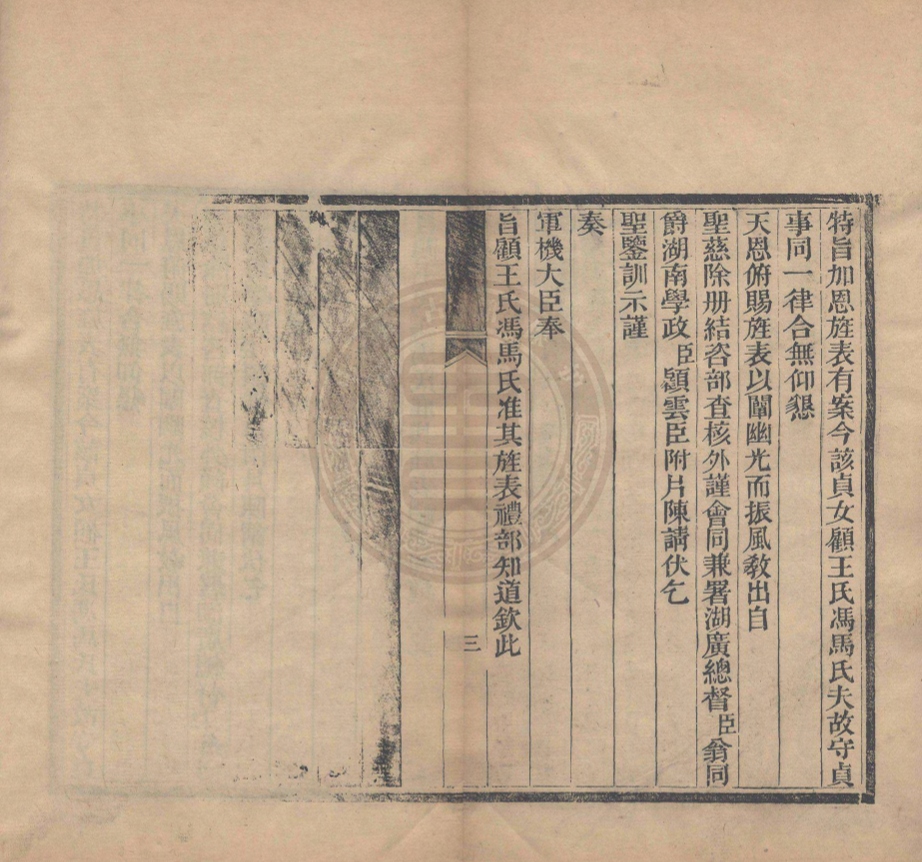 特旨加恩旌表有案今該貞女顧王氏馮馬氏夫故守貞
事同一律合無仰懇
天恩俯賜旌表以闡幽光而振風教出自
聖慈除册結咨部查核外謹會同兼署湖廣總督臣翁同
爵湖南學政臣顧雲臣附片陳請伏乞
聖鑒訓示謹
奏
軍機大臣奉
旨顧王氏馮馬氏准其旌表禮部知道欽此
三